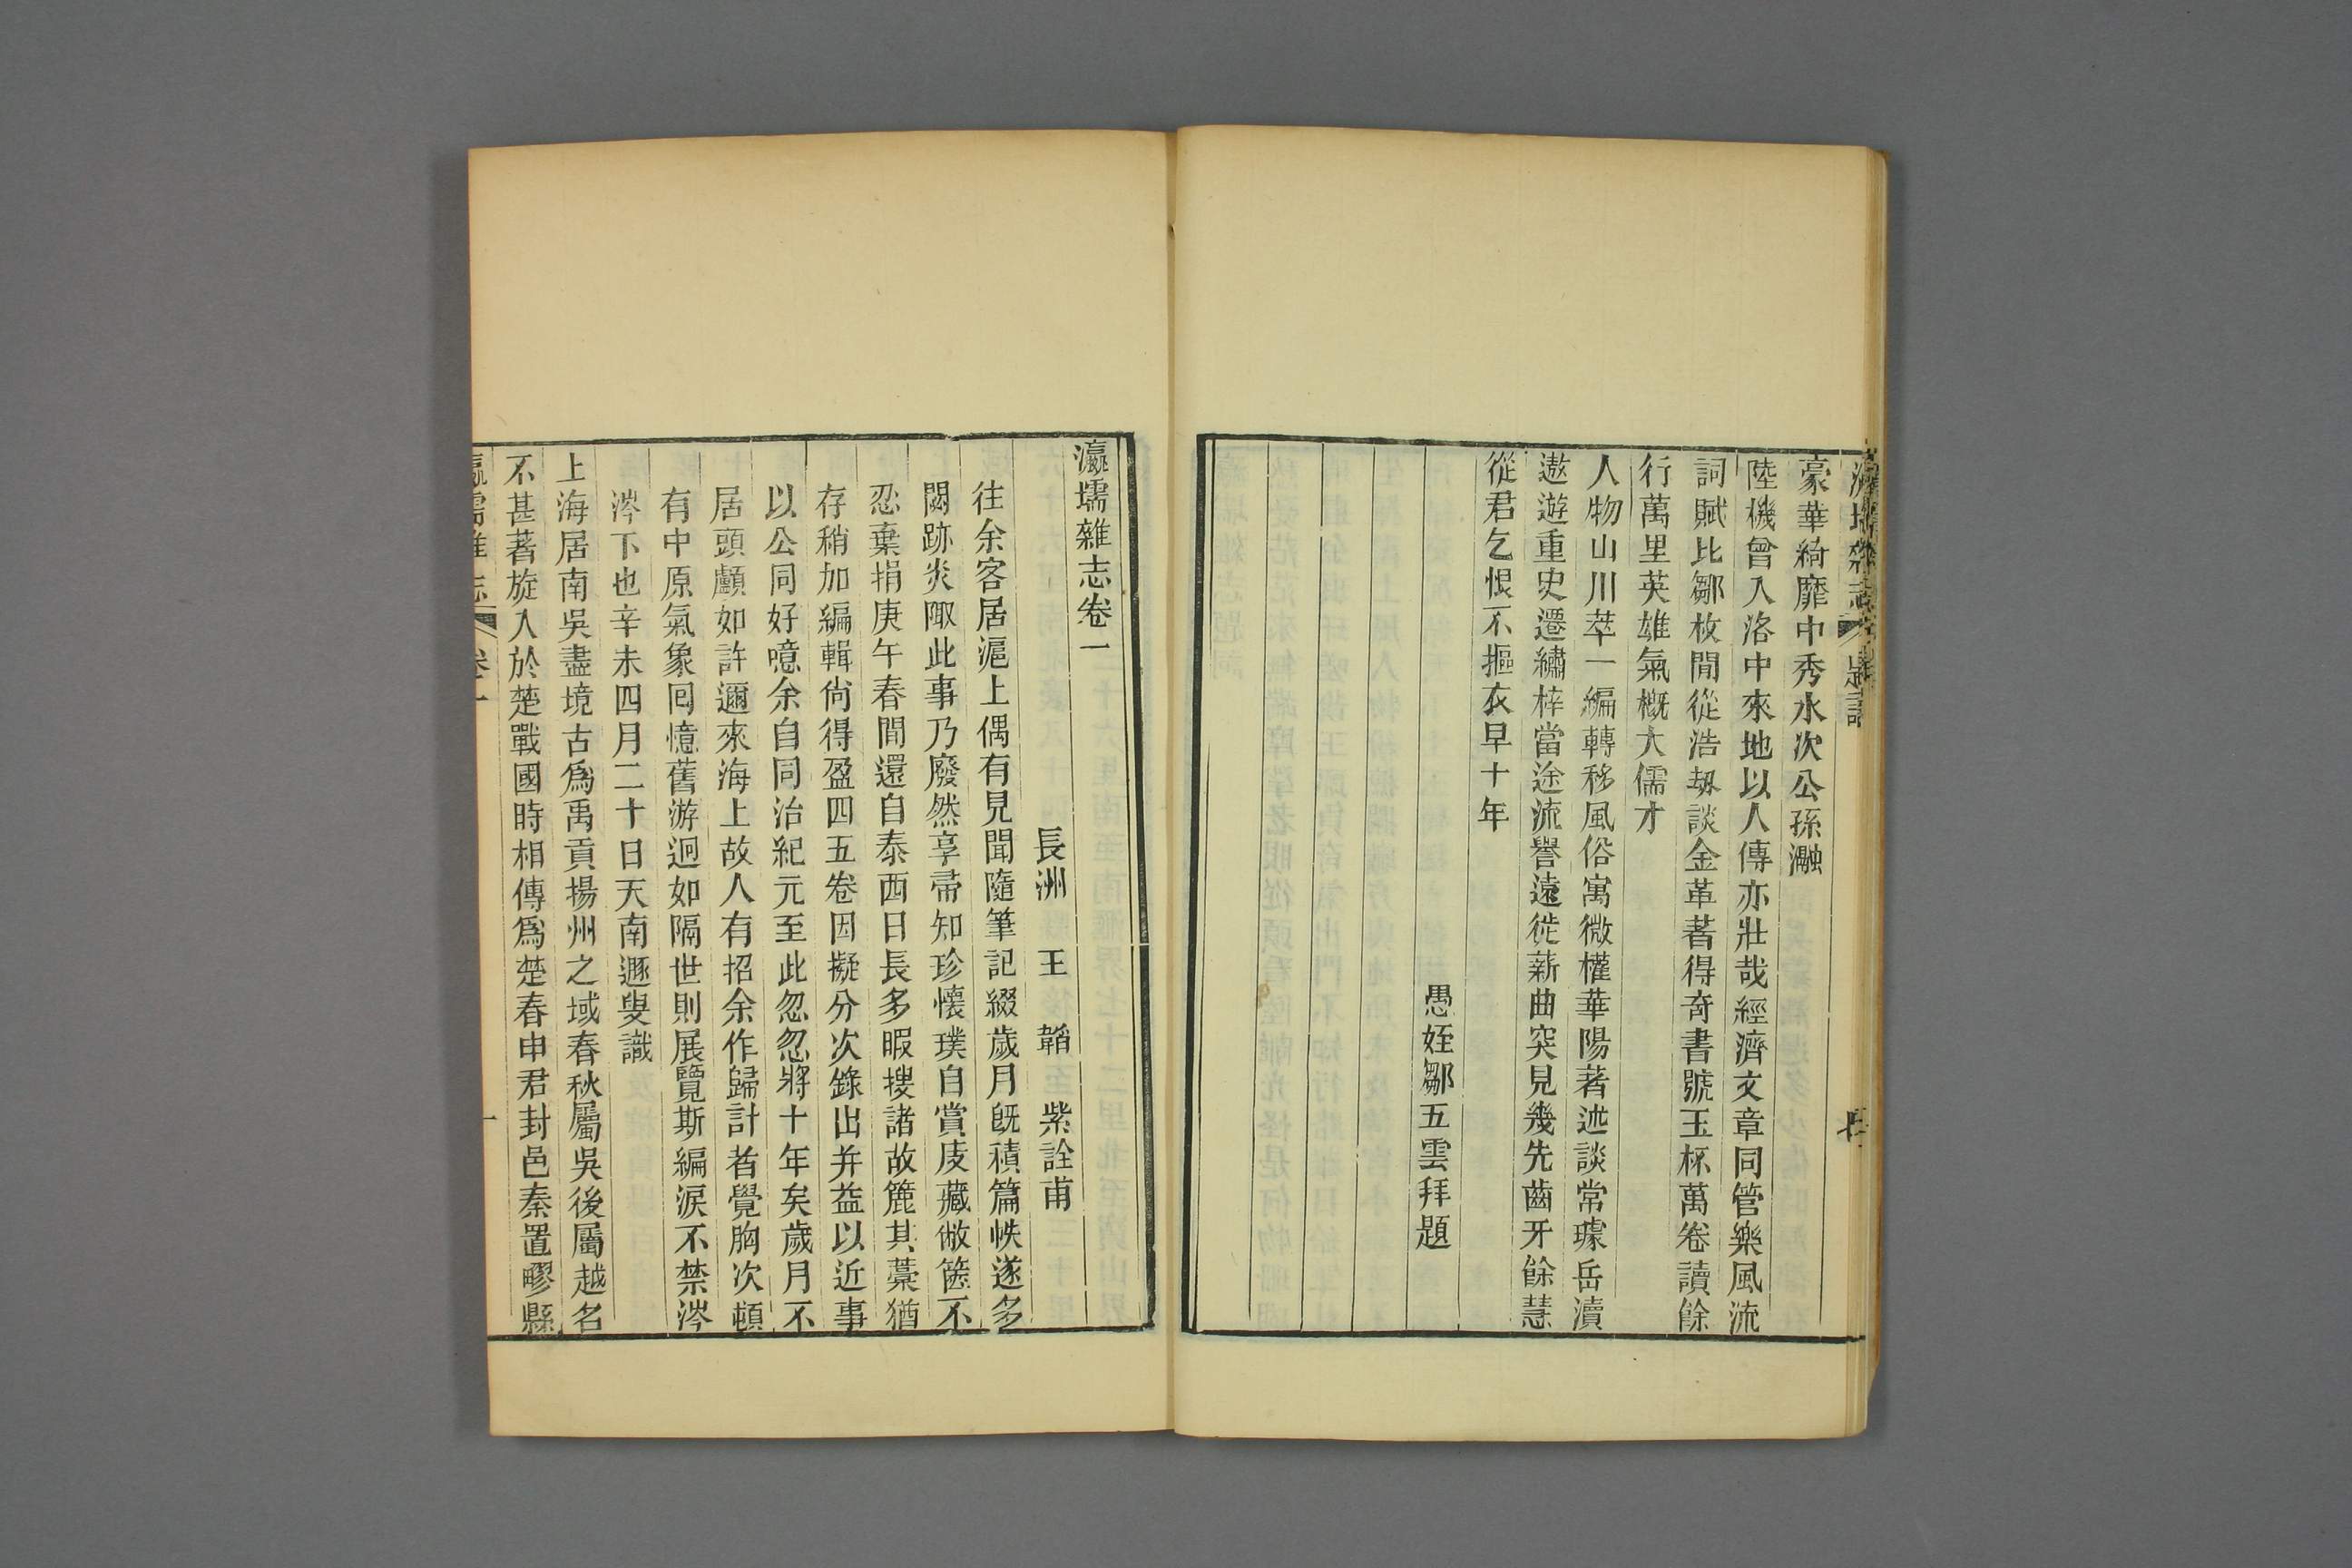 豪華綺靡中秀水次公孫瀜
陸機曾入洛中來地以人傳亦壯哉經濟文章同管樂風流
詞賦比鄒枚閒從浩刼談金革著得奇書號玉杯萬卷讀餘
行萬里英雄氣槪大儒才
人物山川萃一編轉移風俗寓微權華陽著述談常璩岳瀆
遨遊重史遷繡梓當途流譽遠徙薪曲突見幾先齒牙餘慧
從君乞恨不摳衣早十年
愚姪鄒五雲拜題
瀛壖雜志卷一
長洲 王 韜 紫詮甫
往余客居滬上偶有見聞隨筆記綴歲月旣積篇帙遂多
閱跡炎陬此事乃廢然享帚知珍懷璞自賞庋藏敝篋不
忍棄捐庚午春間還自泰西日長多暇搜諸故簏其藁猶
存稍加編輯尙得盈四五卷因擬分次錄出幷益以近事
以公同好噫余自同治紀元至此忽忽將十年矣歲月不
居頭顱如許邇來海上故人有招余作歸計者覺胸次頓
有中原氣象回憶舊游迥如隔世則展覽斯編淚不禁涔
涔下也辛未四月二十日天南遯叟識
上海居南吳盡境古爲禹貢揚州之域春秋屬吳後屬越名
不甚著旋入於楚戰國時相傳爲楚春申君封邑秦置疁縣
瀛壖雜志 卷一 一